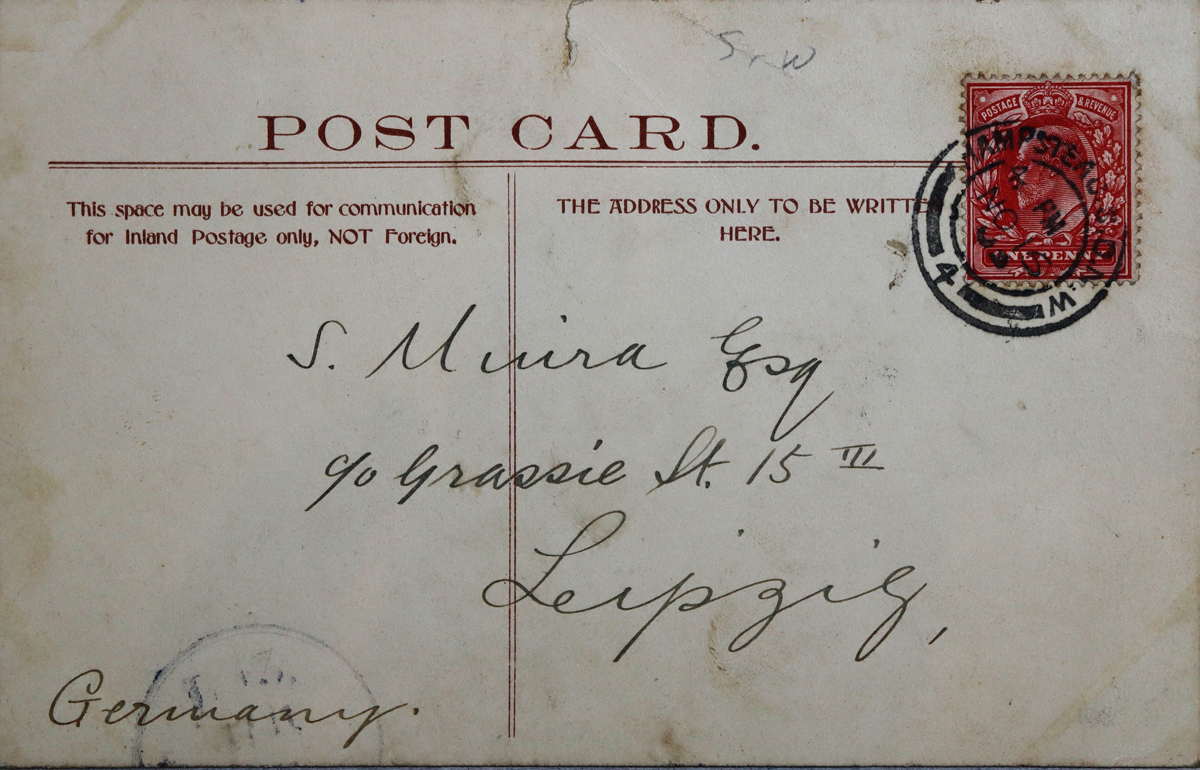 POST CARD.
This space may be used for communication
for Inland Postage only, NOT Foreign.
THE ADDRESS ONLY TO BE WRITTE
HERE.
POSTAGE & REVENUE
ONE PENNY
HAMPSTEAD
4
W.
S. Miura Esq
c/o Grassie St. 15 III
Leipzig,
Germany.